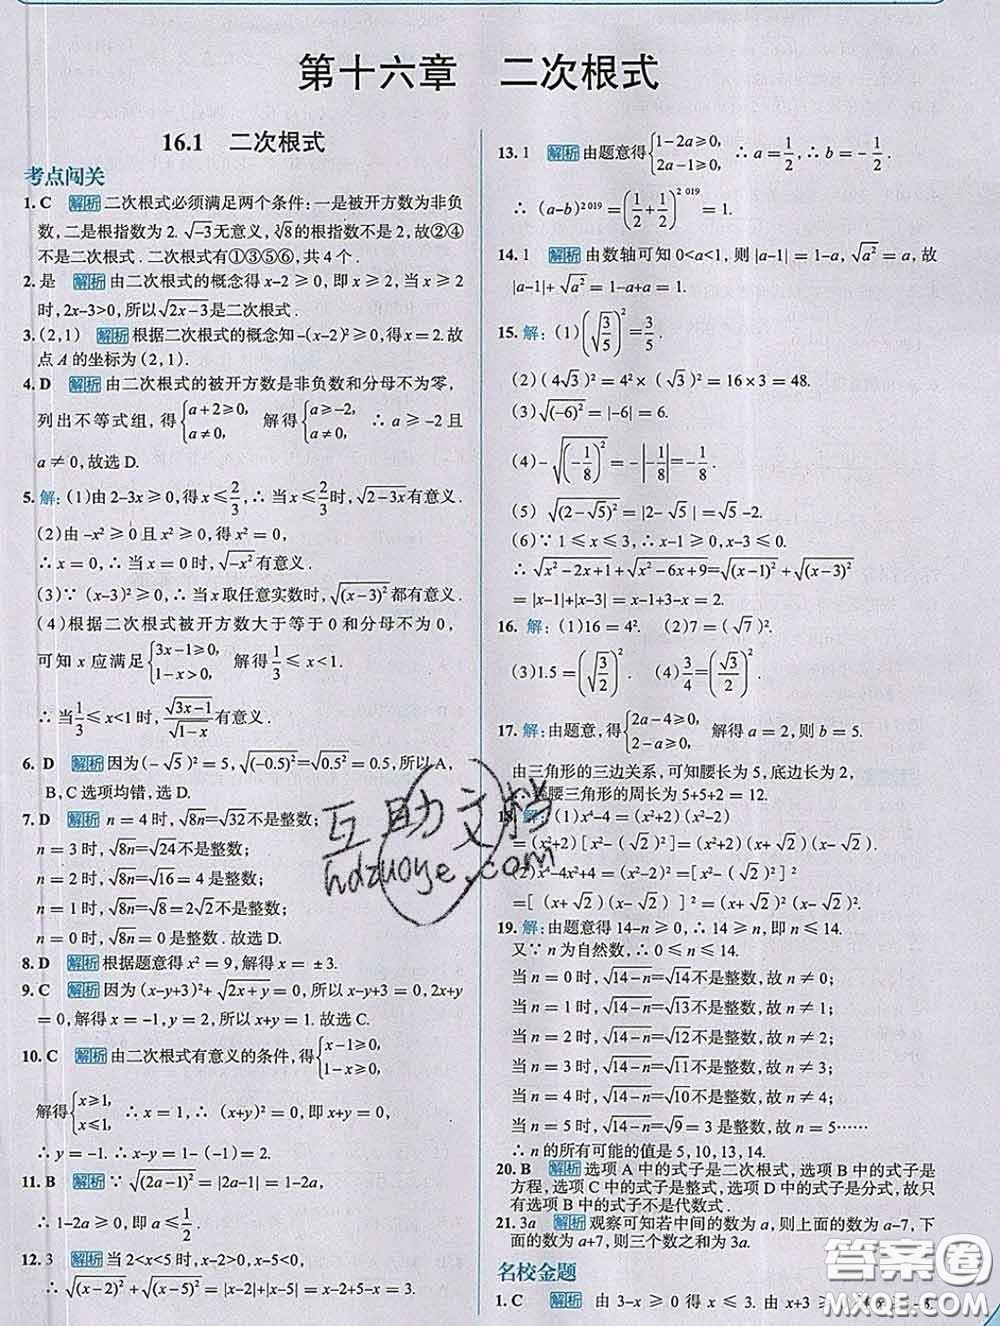 第十六章 二次根式
16.1 二次根式
考点闯关
1. C 解析 二次根式必须满足两个条件:一是被开方数为非负
数,二是根指数为 2. √-3无意义,∛8的根指数不是 2,故②④
不是二次根式. 二次根式有①③⑤⑥,共 4 个.
2. 是 解析 由二次根式的概念得 x-2 ≥ 0,即 x ≥ 2,当 x ≥ 2
时,2x-3>0,所以√(2x-3)是二次根式.
3. (2,1) 解析 根据二次根式的概念知-(x-2)²≥0,得 x = 2. 故
点 A 的坐标为(2,1).
4. D 解析 由二次根式的被开方数是非负数和分母不为零,
列出不等式组,得{a+2≥0, a≠0, 解得{a≥-2, a≠0, ∴ a ≥ -2 且
a ≠ 0,故选 D.
5. 解:(1)由 2-3x ≥ 0,得 x ≤ 2/3,∴ 当 x ≤ 2/3 时,√(2-3x)有意义.
(2)由 -x² ≥ 0 且 x² ≥ 0,得 x² = 0,
∴ x = 0,∴ 当 x = 0 时,√(-x²)有意义.
(3)∵ (x-3)² ≥ 0,∴ 当 x 取任意实数时,√((x-3)²)都有意义.
(4)根据二次根式被开方数大于等于 0 和分母不为 0,
可知 x 应满足{3x-1≥0, 1-x>0, 解得 1/3 ≤ x<1.
∴ 当 1/3 ≤ x<1 时,√(3x-1)/√(1-x)有意义.
6. D 解析 因为(-√5)² = 5,√((-0.5)²)=√(0.5²) = 0.5,所以 A,
B,C 选项均错,选 D.
7. D 解析 n = 4 时,√8n=√32不是整数;
n = 3 时,√8n=√24不是整数;
n = 2 时,√8n=√16 = 4 是整数;
n = 1 时,√8n=√8 = 2√2不是整数;
n = 0 时,√8n = 0 是整数. 故选 D.
8. D 解析 根据题意得 x² = 9,解得 x = ±3.
9. C 解析 因为(x-y+3)²+√(2x+y) = 0,所以 x-y+3 = 0,2x+y
= 0,解得 x = -1,y = 2,所以 x+y = 1. 故选 C.
10. C 解析 由二次根式有意义的条件,得{x-1≥0, 1-x≥0,
解得{x≥1, x≤1, ∴ x = 1,∴ (x+y)² = 0,即 x+y = 0,
∴ y = -1. ∴ x-y = 1-(-1) = 2.
11. B 解析 ∵ √((2a-1)²) = |2a-1| = 1-2a,
∴ 1-2a ≥ 0,即 a ≤ 1/2.
12. 3 解析 当 2<x<5 时,x-2>0,x-5<0,
∴ √((x-2)²) + √((x-5)²) = |x-2|+|x-5| = x-2+5-x = 3.
13. 1 解析 由题意得{1-2a≥0, 2a-1≥0, ∴ a = 1/2,∴ b = -1/2.
∴ (a-b)²⁰¹⁹ = (1/2+1/2)²⁰¹⁹ = 1.
14. 1 解析 由数轴可知 0<a<1,则 |a-1| = 1-a,√a² = a,故
|a-1|+√a² = 1-a+a = 1.
15. 解:(1)(√(3/5))² = 3/5.
(2)(4√3)² = 4²×(√3)² = 16×3 = 48.
(3)√((-6)²) = |-6| = 6.
(4)-√((-1/8)²) = -|-1/8| = -1/8.
(5) √((2-√5)²) = |2-√5| = √5-2.
(6)∵ 1 ≤ x ≤ 3,∴ x-1 ≥ 0,x-3 ≤ 0.
∴ √(x²-2x+1)+√(x²-6x+9)=√((x-1)²)+√((x-3)²)
= |x-1|+|x-3| = x-1+3-x = 2.
16. 解:(1)16 = 4². (2)7 = (√7)².
(3)1.5 = (√(3/2))². (4)3/4 = (√3/2)².
17. 解:由题意,得{2a-4≥0, 2-a≥0, 解得 a = 2,则 b = 5.
由三角形的三边关系,可知腰长为 5,底边长为 2,
∴ 等腰三角形的周长为 5+5+2 = 12.
18. 解:(1)x⁴-4 = (x²+2)(x²-2)
= (x²+2)[x²-(√2)²] = (x²+2)(x+√2)(x-√2).
(2)x⁴-4x²+4 = (x²-2)² = [x²-(√2)²]²
= [(x+√2)(x-√2)]² = (x+√2)²(x-√2)².
19. 解:由题意得 14-n ≥ 0,∴ 14 ≥ n,即 n ≤ 14.
又∵ n 为自然数,∴ 0 ≤ n ≤ 14.
当 n = 0 时,√(14-n)=√14不是整数,故 n ≠ 0;
当 n = 1 时,√(14-n)=√13不是整数,故 n ≠ 1;
当 n = 2 时,√(14-n)=√12不是整数,故 n ≠ 2;
当 n = 3 时,√(14-n)=√11不是整数,故 n ≠ 3;
当 n = 4 时,√(14-n)=√10不是整数,故 n ≠ 4;
当 n = 5 时,√(14-n)=√9 = 3 是整数,故 n = 5……
∴ n 的所有可能的值是 5,10,13,14.
20. B 解析 选项 A 中的式子是二次根式,选项 B 中的式子是
方程,选项 C 中的式子是整式,选项 D 中的式子是分式,故只
有选项 B 中的式子不是代数式.
21. 3a 解析 观察可知若中间的数为 a,则上面的数为 a-7,下
面的数为 a+7,则三个数之和为 3a.
名校金题
1. C 解析 由 3-x ≥ 0 得 x ≤ 3. 由 x+3 ≥
互助文档
hdzuoye.com
答案圈
MXQE.COM